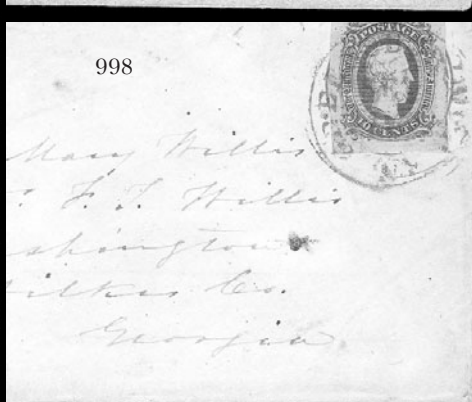 998
POSTAGE
10 CENTS
Mary Willis
F. T. Willis
shington
ilkes Co.
Georgia